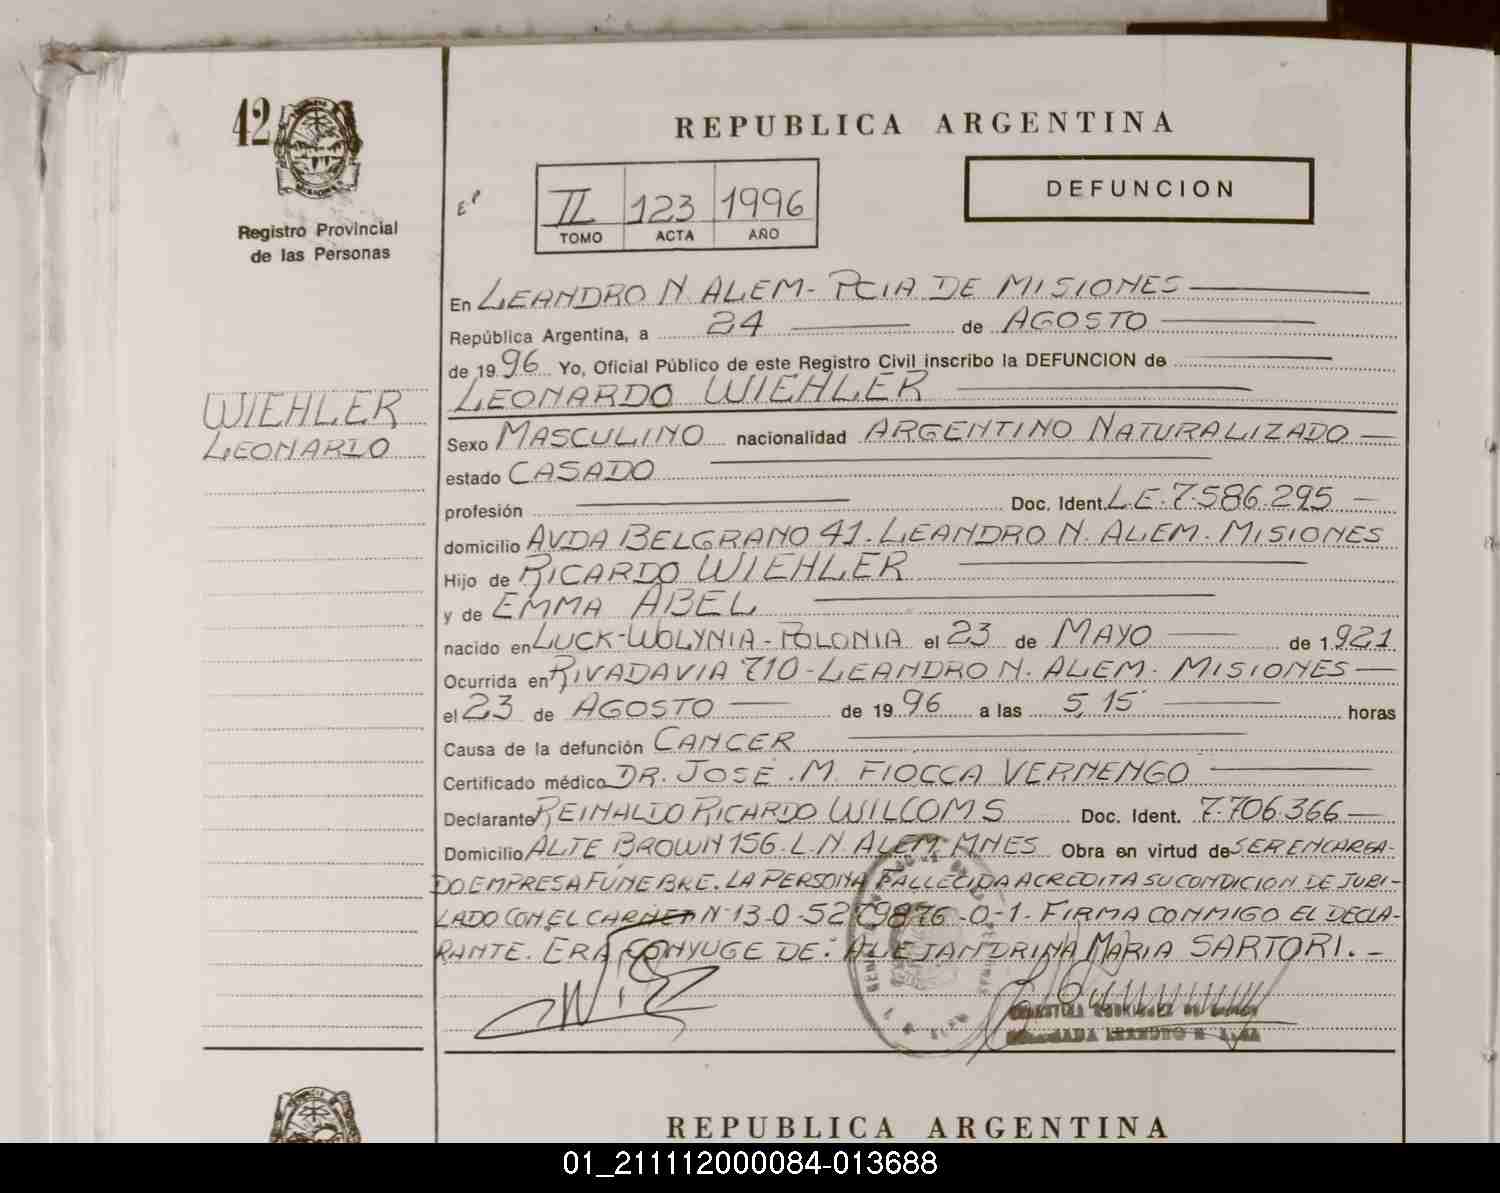 42
Registro Provincial
de las Personas
WIEHLER
LEONARDO
REPUBLICA ARGENTINA
II 123 1996
TOMO ACTA AÑO
DEFUNCION
En LEANDRO N ALEM - PCIA DE MISIONES
República Argentina, a 24 de AGOSTO
de 19 96 Yo, Oficial Público de este Registro Civil inscribo la DEFUNCION de
LEONARDO WIEHLER
Sexo MASCULINO nacionalidad ARGENTINO NATURALIZADO
estado CASADO
profesión Doc. Ident. L.E. 7.586.295
domicilio AVDA BELGRANO 41. LEANDRO N. ALEM. MISIONES
Hijo de RICARDO WIEHLER
y de EMMA ABEL
nacido en LUCK-WOLYNIA-POLONIA el 23 de MAYO de 1.921
Ocurrida en RIVADAVIA 710-LEANDRO N. ALEM. MISIONES
el 23 de AGOSTO de 19 96 a las 5,15 horas
Causa de la defunción CANCER
Certificado médico DR. JOSÉ. M. FIOCCA VERNENGO
Declarante REINALDO RICARDO WILCOMS Doc. Ident. 7.706.366
Domicilio ALTE BROWN 156. L.N. ALEM. MNES Obra en virtud de SER ENCARGA-
DO EMPRESA FUNEBRE. LA PERSONA FALLECIDA ACREDITA SU CONDICION DE JUBI-
LADO CON EL CARNET N° 13-0-5279876-0-1. FIRMA CONMIGO EL DECLA-
RANTE. ERA CONYUGE DE: ALEJANDRINA MARIA SARTORI.-
REPUBLICA ARGENTINA
01_211112000084-013688